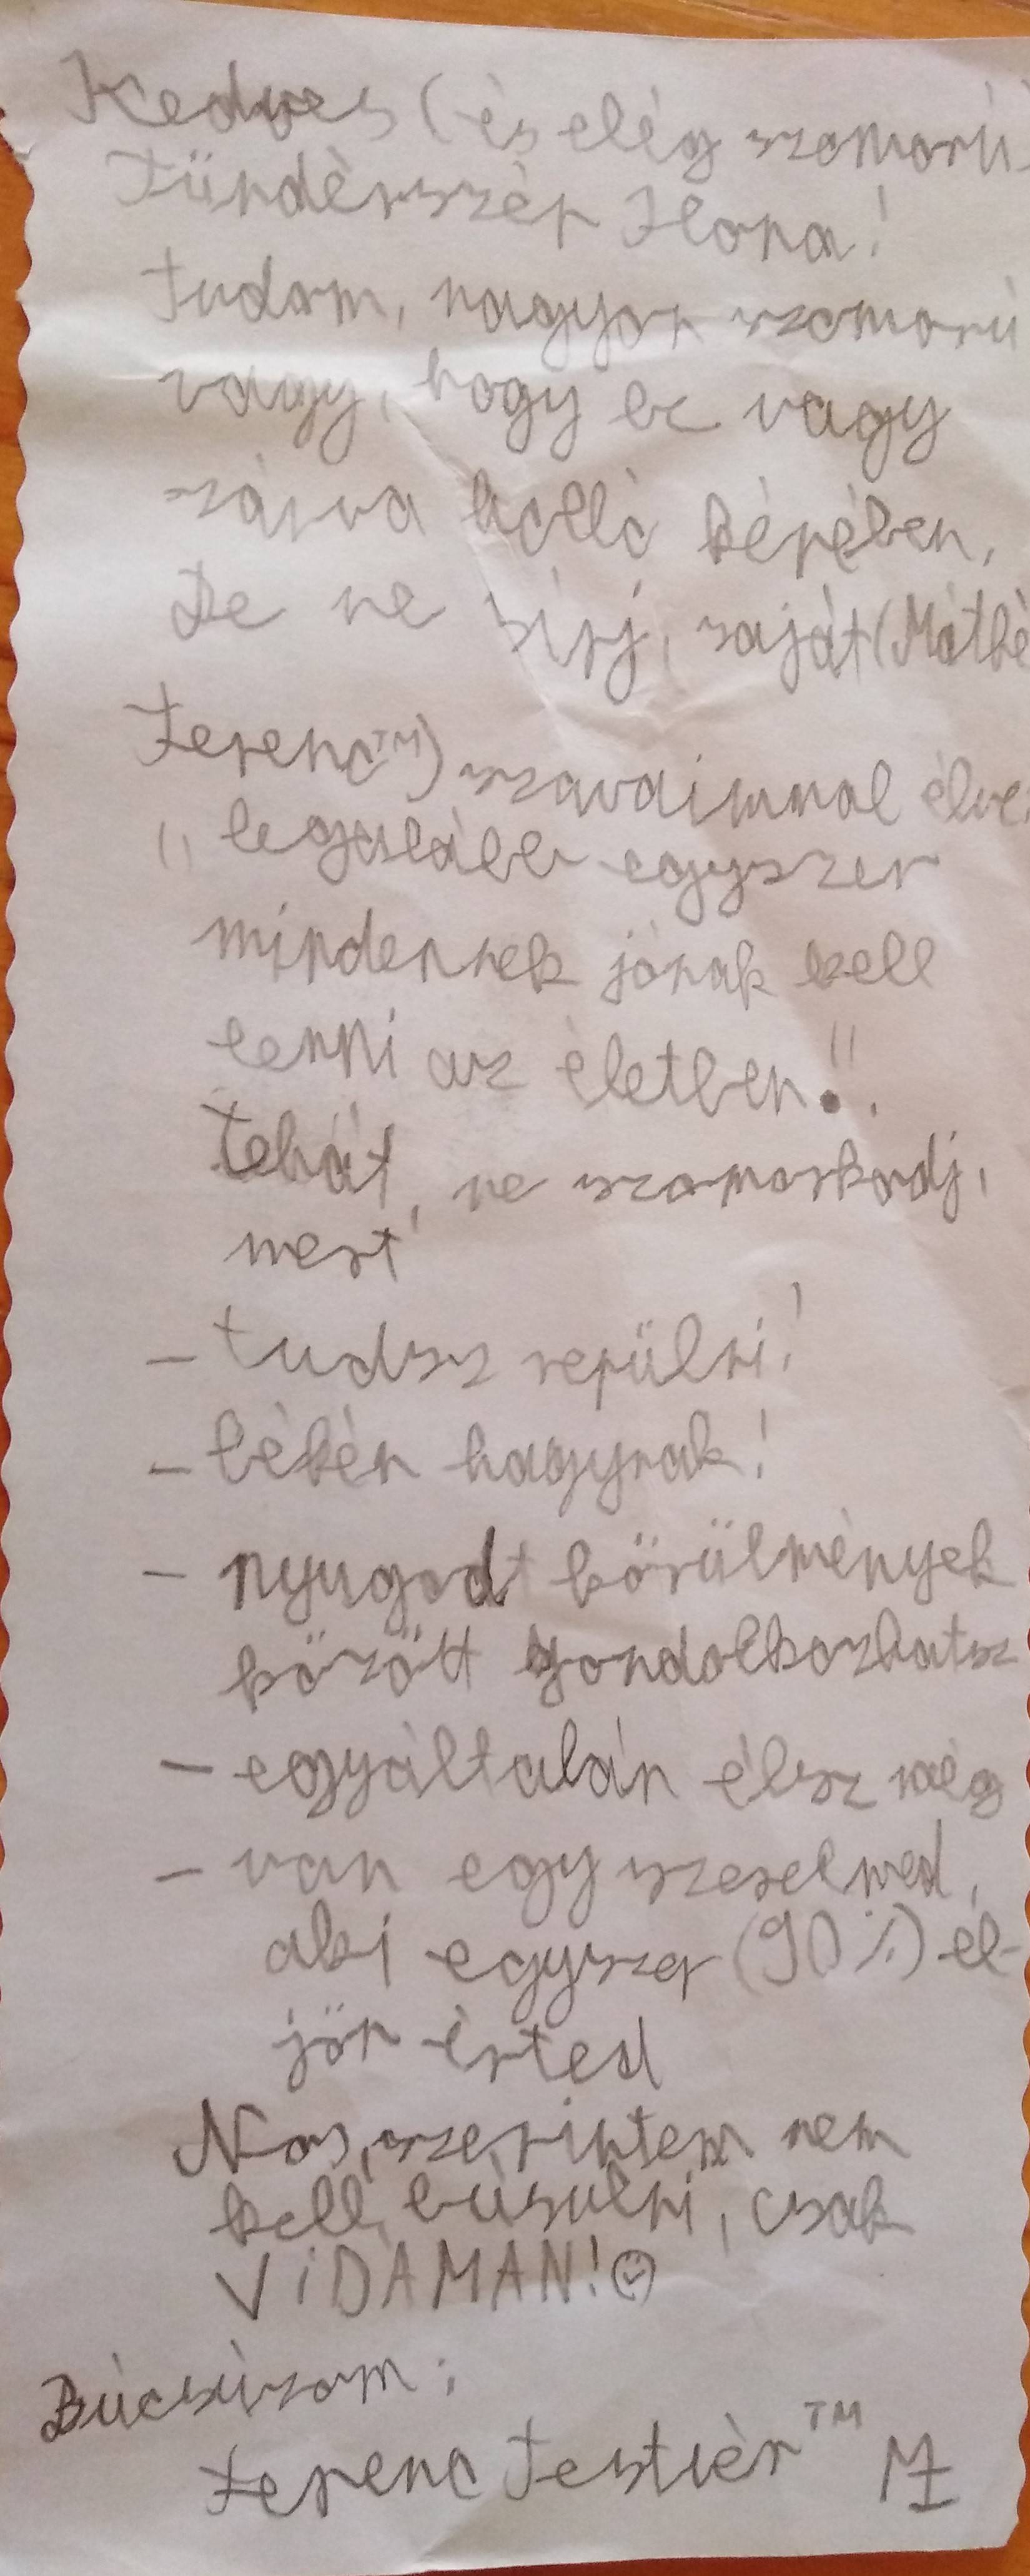 Kedves (és elég szomorú)
Tündérszép Ilona!
Tudom, nagyon szomorú
vagy, hogy be vagy
zárva holló képében,
De ne sírj, saját (Máthé
Ferenc™) szavaimmal élve:
"legalább egyszer
mindennek jónak kell
lenni az életben!".
Tehát, ne szomorkodj,
mert
- tudsz repülni!
- békén hagynak!
- nyugodt körülmények
között gondolkozhatsz
- egyáltalán élsz még
- van egy szerelmed,
aki egyszer (90%) el-
jön érted
Nos, szerintem nem
kell búsulni, csak
ViDÁMAN!☺
Búcsúzom:
Ferenc Testvér™